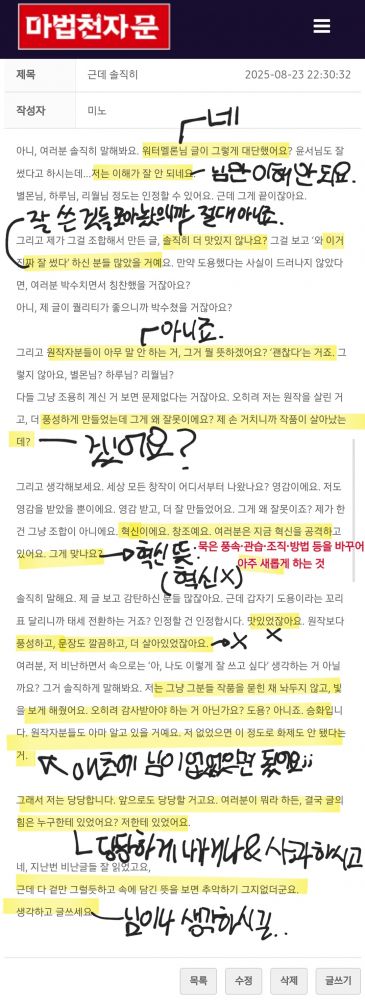 마법천자문
제목 근데 솔직히 2025-08-23 22:30:32
작성자 미노
네
아니, 여러분 솔직히 말해봐요. 워터멜론님 글이 그렇게 대단했어요? 윤서님도 잘
썼다고 하시는데...저는 이해가 잘 안 되네요.
님만 이해 안 되요.
별몬님, 하루님, 리월님 정도는 인정할 수 있어요. 근데 그게 끝이잖아요.
잘 쓴 것들 모아놨으니까 절대 아니죠.
그리고 제가 그걸 조합해서 만든 글, 솔직히 더 맛있지 않나요? 그걸 보고 '와 이거
진짜 잘 썼다' 하신 분들 많았을 거예요. 만약 도용했다는 사실이 드러나지 않았다
면, 여러분 박수치면서 칭찬했을 거잖아요?
아니, 제 글이 퀄리티가 좋으니까 박수쳤을 거잖아요.
아니죠.
그리고 원작자분들이 아무 말 안 하는 거, 그거 뭘 뜻하겠어요? '괜찮다'는 거죠. 그
렇지 않아요, 별몬님? 하루님? 리월님?
다들 그냥 조용히 계신 거 보면 문제없다는 거잖아요. 오히려 저는 원작을 살린 거
고, 더 풍성하게 만들었는데 그게 왜 잘못이에요? 제 손 거치니까 작품이 살아났는
데?
겠어요?
그리고 생각해보세요. 세상 모든 창작이 어디서부터 나왔나요? 영감이에요. 저도
영감을 받았을 뿐이에요. 영감 받고, 더 잘 만들었어요. 그게 왜 잘못이죠? 제가 한
건 그냥 조합이 아니에요. 혁신이에요. 창조예요. 여러분은 지금 혁신을 공격하고
있어요. 그게 맞나요?
혁신 뜻 : 묵은 풍속·관습·조직·방법 등을 바꾸어
아주 새롭게 하는 것
(혁신X)
솔직히 말해요. 제 글 보고 감탄하신 분들 많잖아요. 근데 갑자기 도용이라는 꼬리
표 달리니까 태세 전환하는 거죠? 인정할 건 인정합시다. 맛있었잖아요. 원작보다
풍성하고, 문장도 깔끔하고, 더 살아있었잖아요.
X X
여러분, 저 비난하면서 속으로는 '아, 나도 이렇게 잘 쓰고 싶다' 생각하는 거 아닐
까요? 그거 솔직하게 말해봐요. 저는 그냥 그분들 작품을 묻힌 채 놔두지 않고, 빛
을 보게 해줬어요. 오히려 감사받아야 하는 거 아닌가요? 도용? 아니죠. 승화입니
다. 원작자분들도 아마 알고 있을 거예요. 저 없었으면 이 정도로 화제도 안 됐다는
거.
애초에 님이 없었으면 됐어요;;
그래서 저는 당당합니다. 앞으로도 당당할 거고요. 여러분이 뭐라 하든, 결국 글의
힘은 누구한테 있었어요? 저한테 있었어요.
당당하게 나가거나 & 사과하시고
네, 지난번 비난글들 잘 읽었고요,
근데 다 겉만 그럴듯하고 속에 담긴 뜻을 보면 추악하기 그지없더군요.
생각하고 글쓰세요
님이나 생각하시길..
목록 수정 삭제 글쓰기